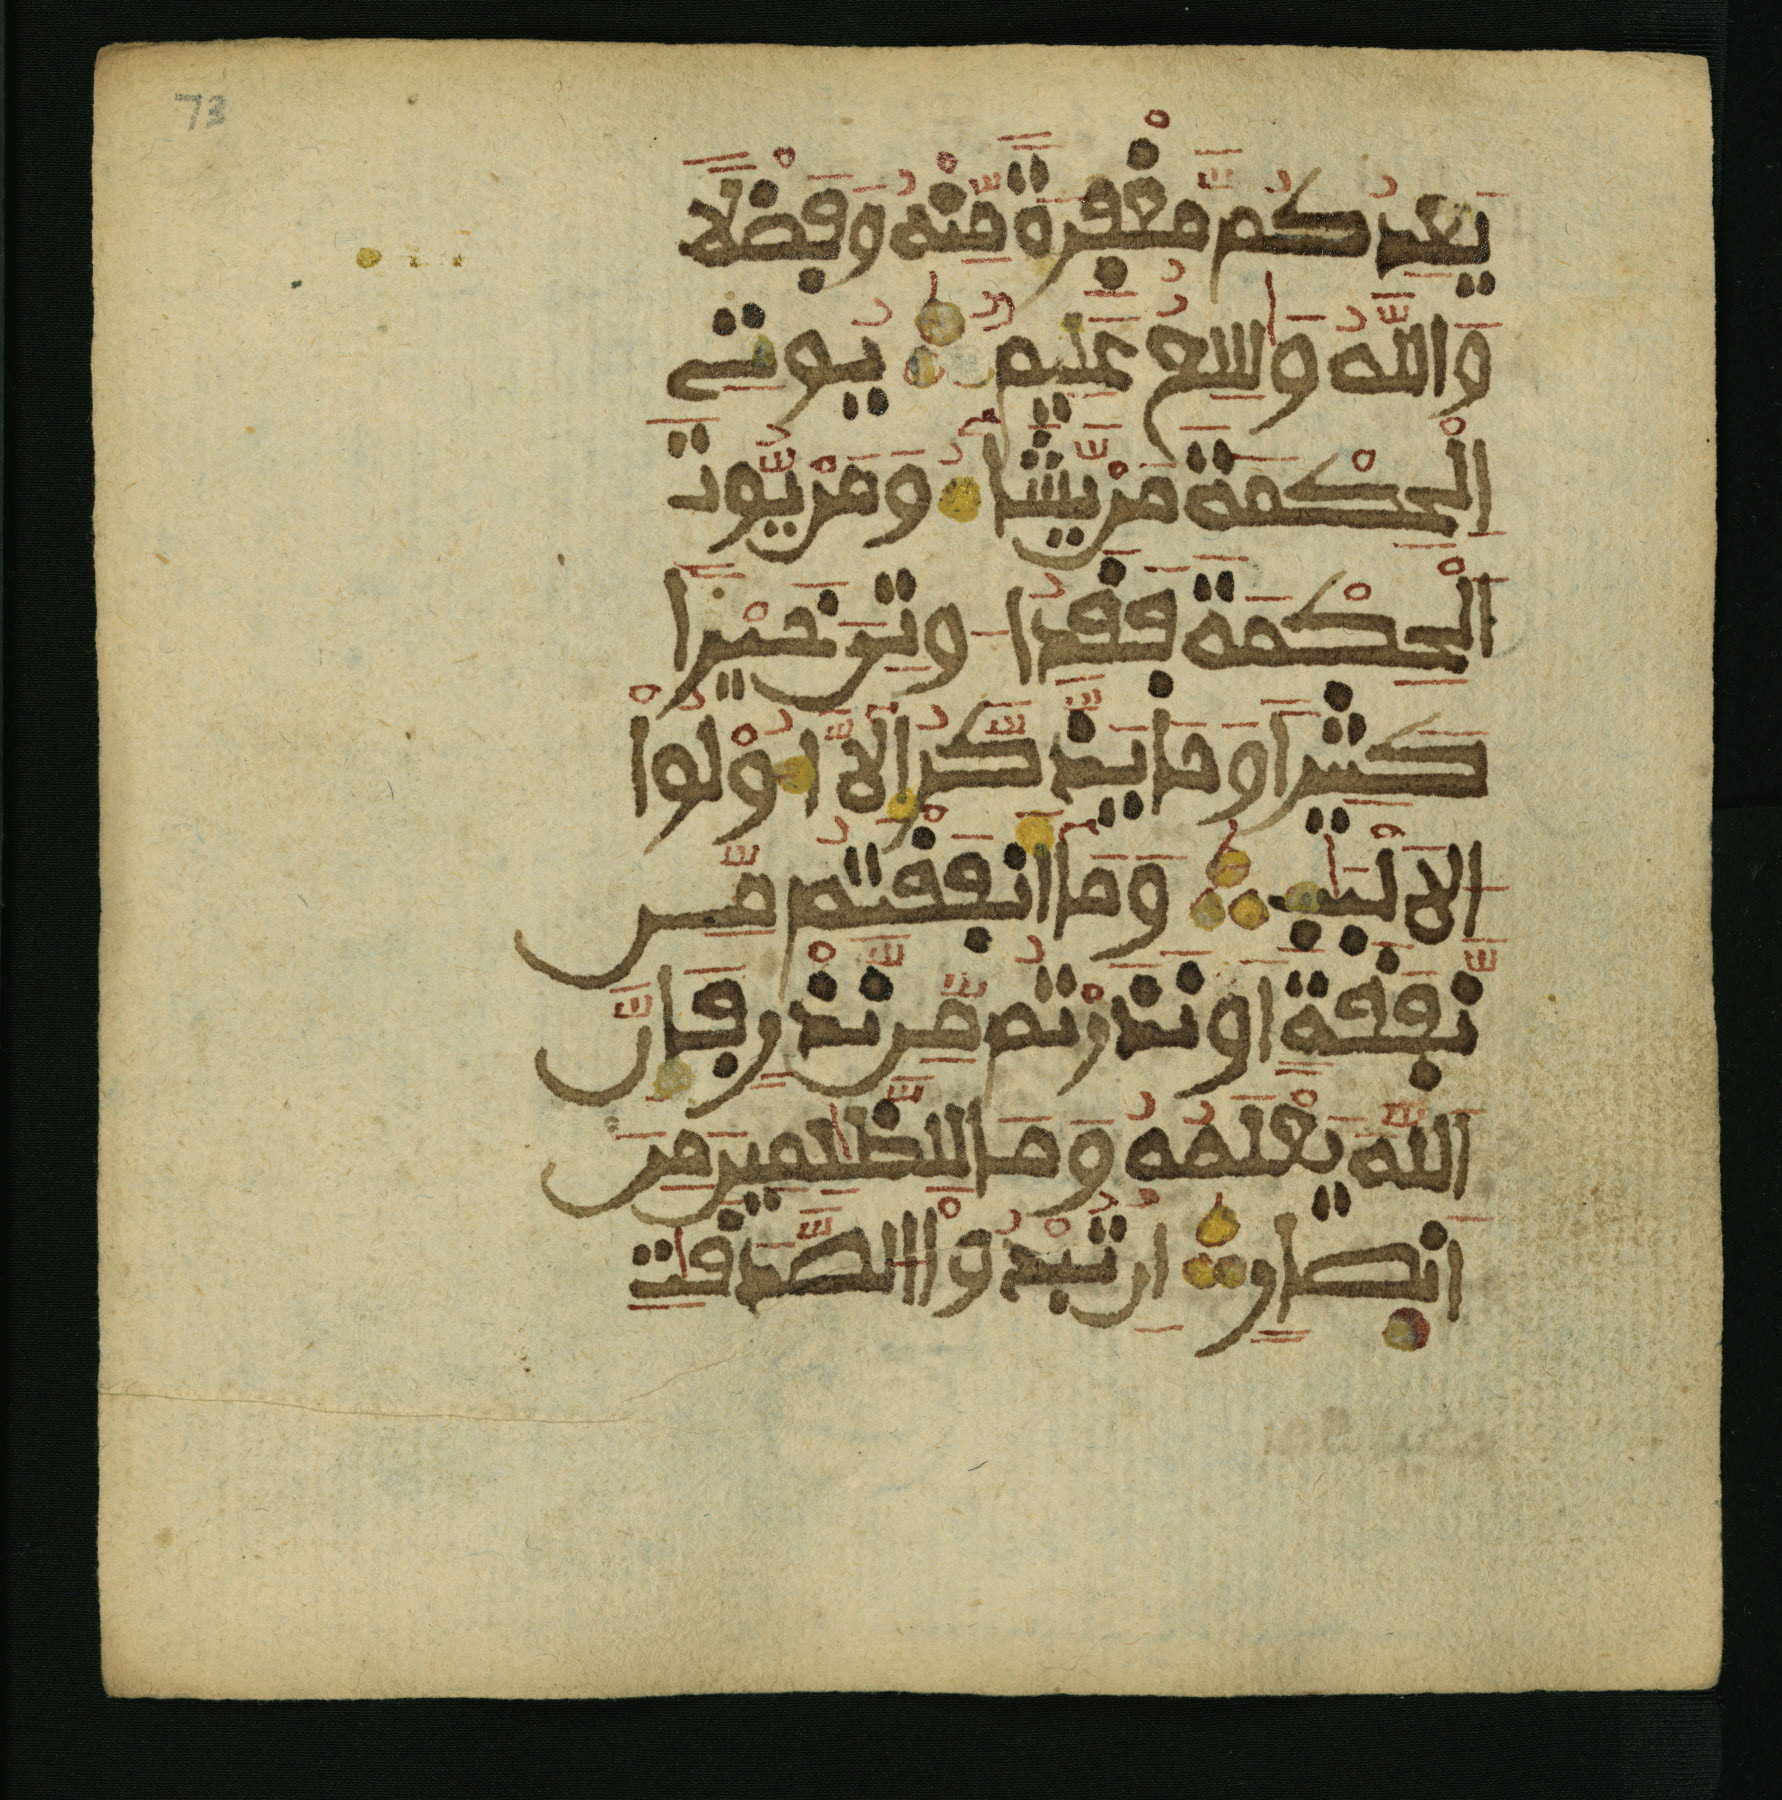 73
يَعِدُكُم مَّغْفِرَةً مِّنْهُ وَفَضْلًا
وَاللَّهُ وَاسِعٌ عَلِيمٌ يُوتِي
الْحِكْمَةَ مَنْ يَّشَا وَمَنْ يُّوتَ
الْحِكْمَةَ فَقَدُ اوتِيَ خَيْرًا
كَثِيرًا وَمَا يَذَّكَّرُ إِلَّا أُوْلُوا
الَالْبَٰبِ وَمَا أَنفَقْتُم مِّن
نَّفَقَةٍ اَوْ نَذَرْتُم مِّن نَّذْرٍ فَإِنَّ
اللَّهَ يَعْلَمُهُ وَمَا لِلظَّٰلِمِينَ مِنَ
انصِارٍ إِن تُبْدُوْا الصَّدَقَٰتِ